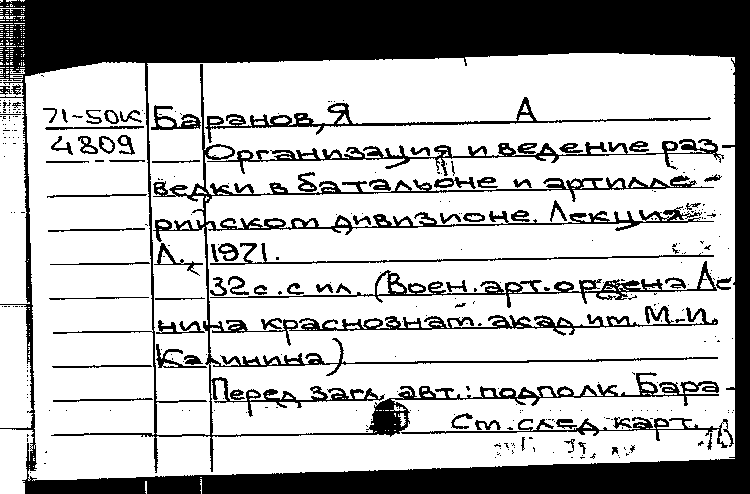 71-50к Баранов, Я А
4809 Организация и ведение раз-
ведки в батальоне и артилле-
рийском дивизионе. Лекция
Л., 1971.
32 с. с ил. (Воен. арт. ордена Ле-
нина краснознам. акад. им. М. И.
Калинина)
Перед загл. авт.: подполк. Бара-
См. след. карт.